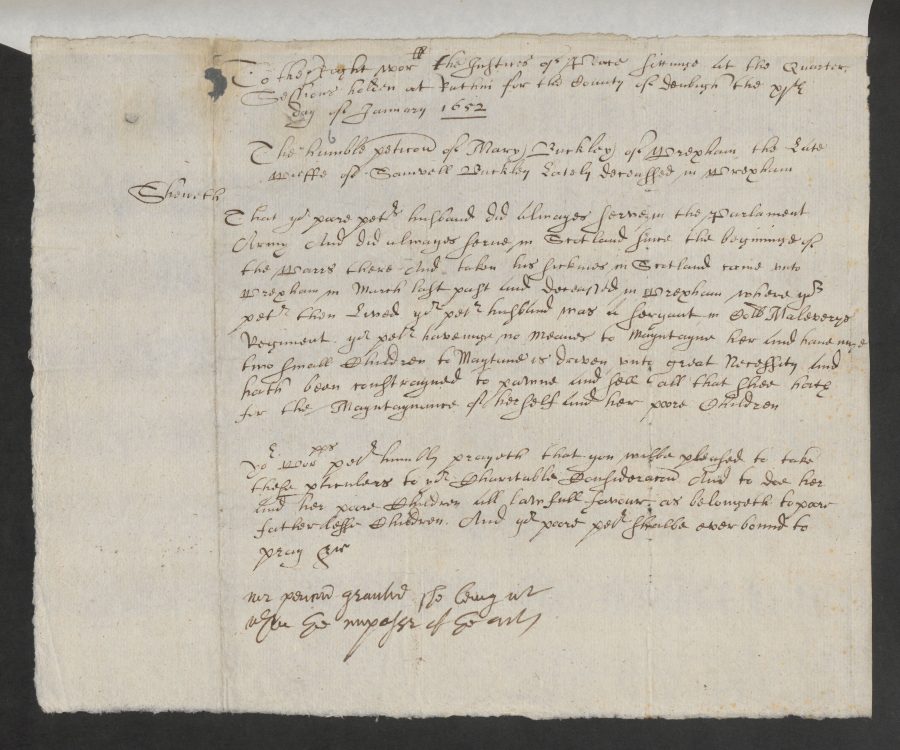 To the Right wor:ff the Justices of Peace sittinge at the Quarter
Sessions holden at Ruthin for the County of denbigh the xjth
day of January 1652
The humble peticon of Mary Buckley of Wrexham the Late
Wieffe of Samvell Buckley Lately deceassed in Wrexham
Sheweth
That yor poore petr husband did Allwayes serve in the Parlament
Army And did allwayes serve in Scotland since the beginninge of
the Warrs there And taken his sicknes in Scotland came unto
Wrexham in March last past And deceassed in Wrexham where yor
petr then Lived yor petr husband was A servant in Coll Maleverys
Regiment. yor petr haveinge no Meanes to Mayntayne her And haveinge
two small Children to Maytane is driven unto great Necessity And
hath been constrayned to pawne And sell all that shee hath
for the Mayntaynance of herself And her poore Children
Yor Worpps petr humbly prayeth that you wilbe pleased to take
these pticulers to yor Charitable Consideracon And to doe her
And her poore Children All lawfull favour as belongeth to poore
fatherlesse Children. And yor poore petr shalbe ever bound to
pray &c
her peticon granted she being
the of the